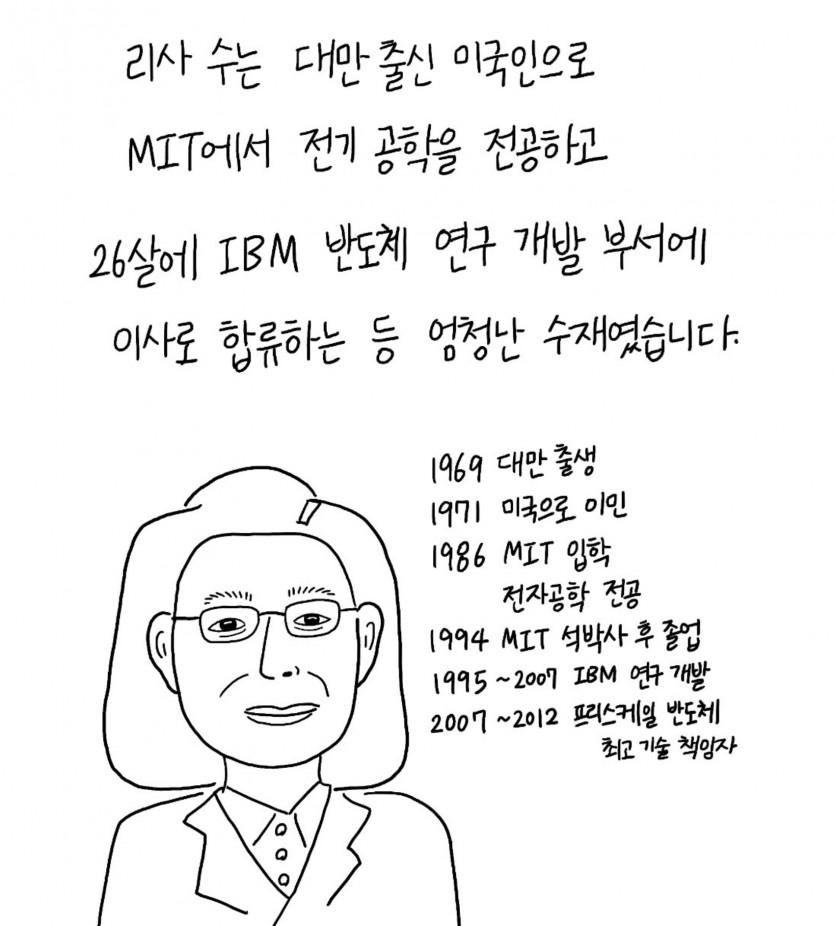 리사 수는 대만 출신 미국인으로
MIT에서 전기 공학을 전공하고
26살에 IBM 반도체 연구 개발 부서에
이사로 합류하는 등 엄청난 수재였습니다.
1969 대만 출생
1971 미국으로 이민
1986 MIT 입학
전자공학 전공
1994 MIT 석박사 후 졸업
1995 ~ 2007 IBM 연구 개발
2007 ~ 2012 프리스케일 반도체
최고 기술 책임자